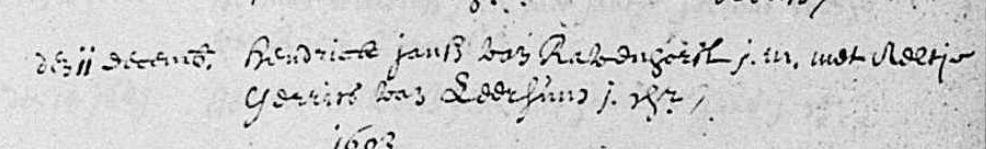 den 11 decemb. Hendrick janss van Ravenhorst j. m. met Neeltje
Gerrits van Leersum j. dr.
1603